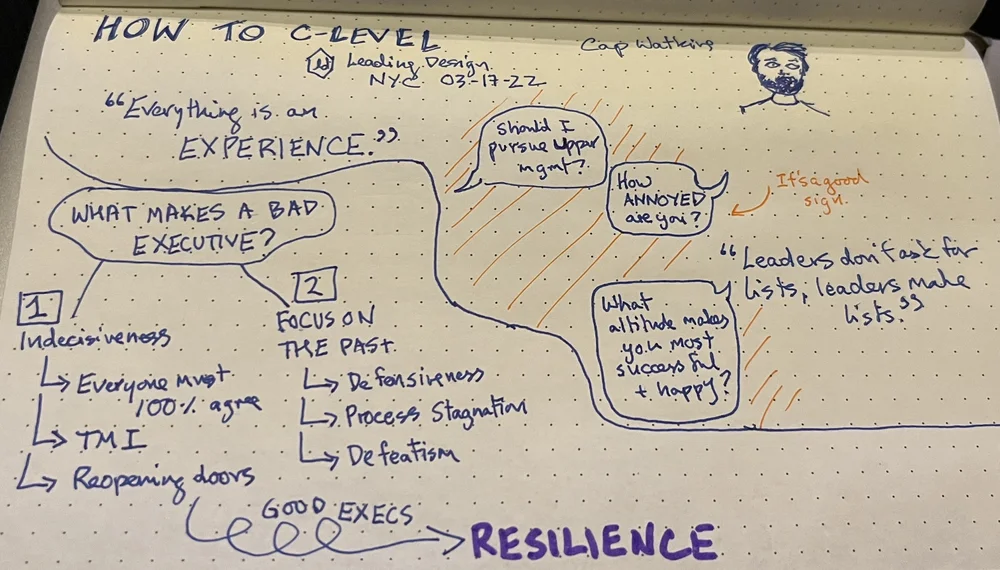 HOW TO C-LEVEL
Leading Design
NYC 03-17-22
Cap Watkins
“Everything is an
EXPERIENCE.”
Should I
pursue upper
mgmt?
How
ANNOYED
are you?
It's a good
sign.
WHAT MAKES A BAD
EXECUTIVE?
1
Indecisiveness
Everyone must
100% agree
TMI
Reopening doors
2
FOCUS ON
THE PAST.
Defensiveness
Process Stagnation
Defeatism
“Leaders don't ask for
lists, leaders make
lists.”
What
altitude makes
you most
successful
+ happy?
GOOD EXECS
RESILIENCE